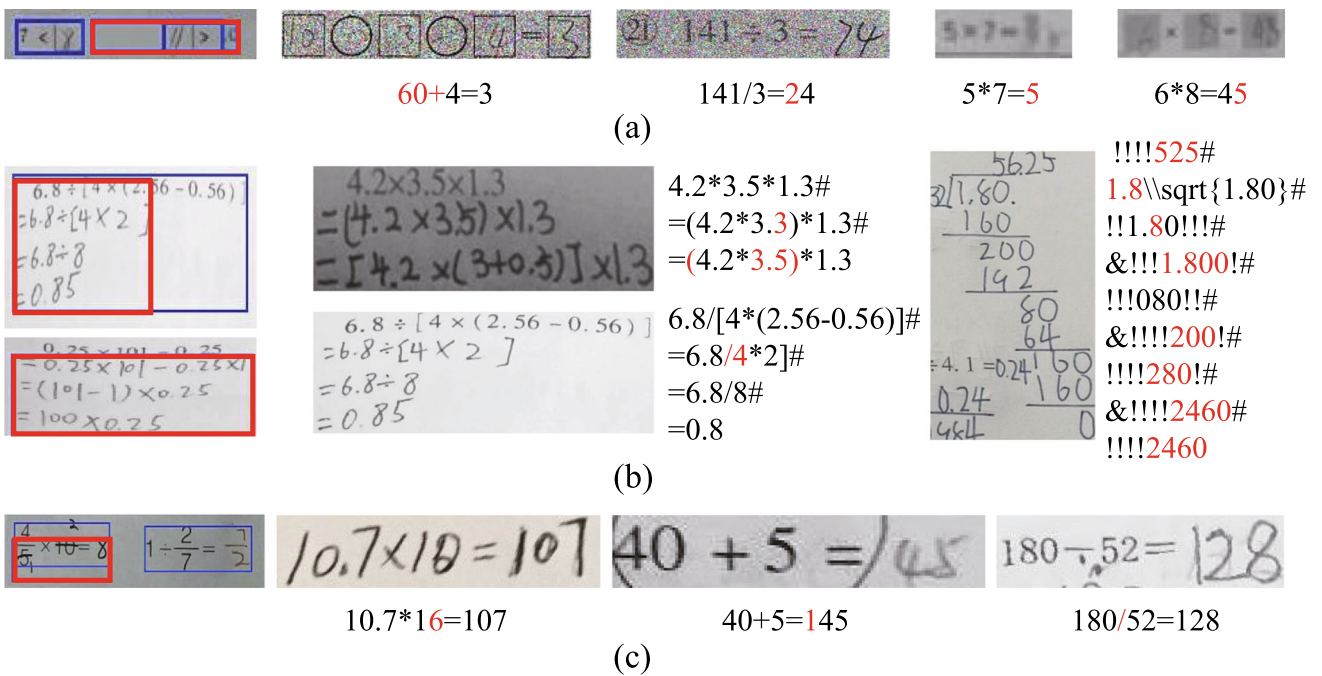 7 < 8 11 >
10 3 4 = 3
㉑ 141 ÷ 3 = 74
5 × 7 =
6 × 8 = 48
60+4=3
141/3=24
5*7=5
6*8=45
(a)
6.8 ÷ [4 × (2.56 - 0.56)]
=6.8÷[4×2]
=6.8÷8
=0.85
0.25 × 101 - 0.25
-0.25×101-0.25×1
=(101-1)×0.25
=100×0.25
4.2×3.5×1.3
=(4.2×3.5)×1.3
=[4.2×(3+0.5)]×1.3
4.2*3.5*1.3#
=(4.2*3.3)*1.3#
=(4.2*3.5)*1.3
6.8 ÷ [4 × (2.56 - 0.56)]
=6.8÷[4×2]
=6.8÷8
=0.85
6.8/[4*(2.56-0.56)]#
=6.8/4*2]#
=6.8/8#
=0.8
56.25
32 1.80.
160
200
192
80
64
÷4.1=0.24 160
0.24 160
984 0
!!!!525#
1.8\\sqrt{1.80}#
!!1.80!!!#
&!!!1.800!#
!!!080!!#
&!!!!200!#
!!!!280!#
&!!!!2460#
!!!!2460
(b)
4/5 × 10 = 8 2 1
1 ÷ 2/7 = 7/2
10.7×10=107
40 + 5 = 45
180-52=128
10.7*16=107
40+5=145
180/52=128
(c)